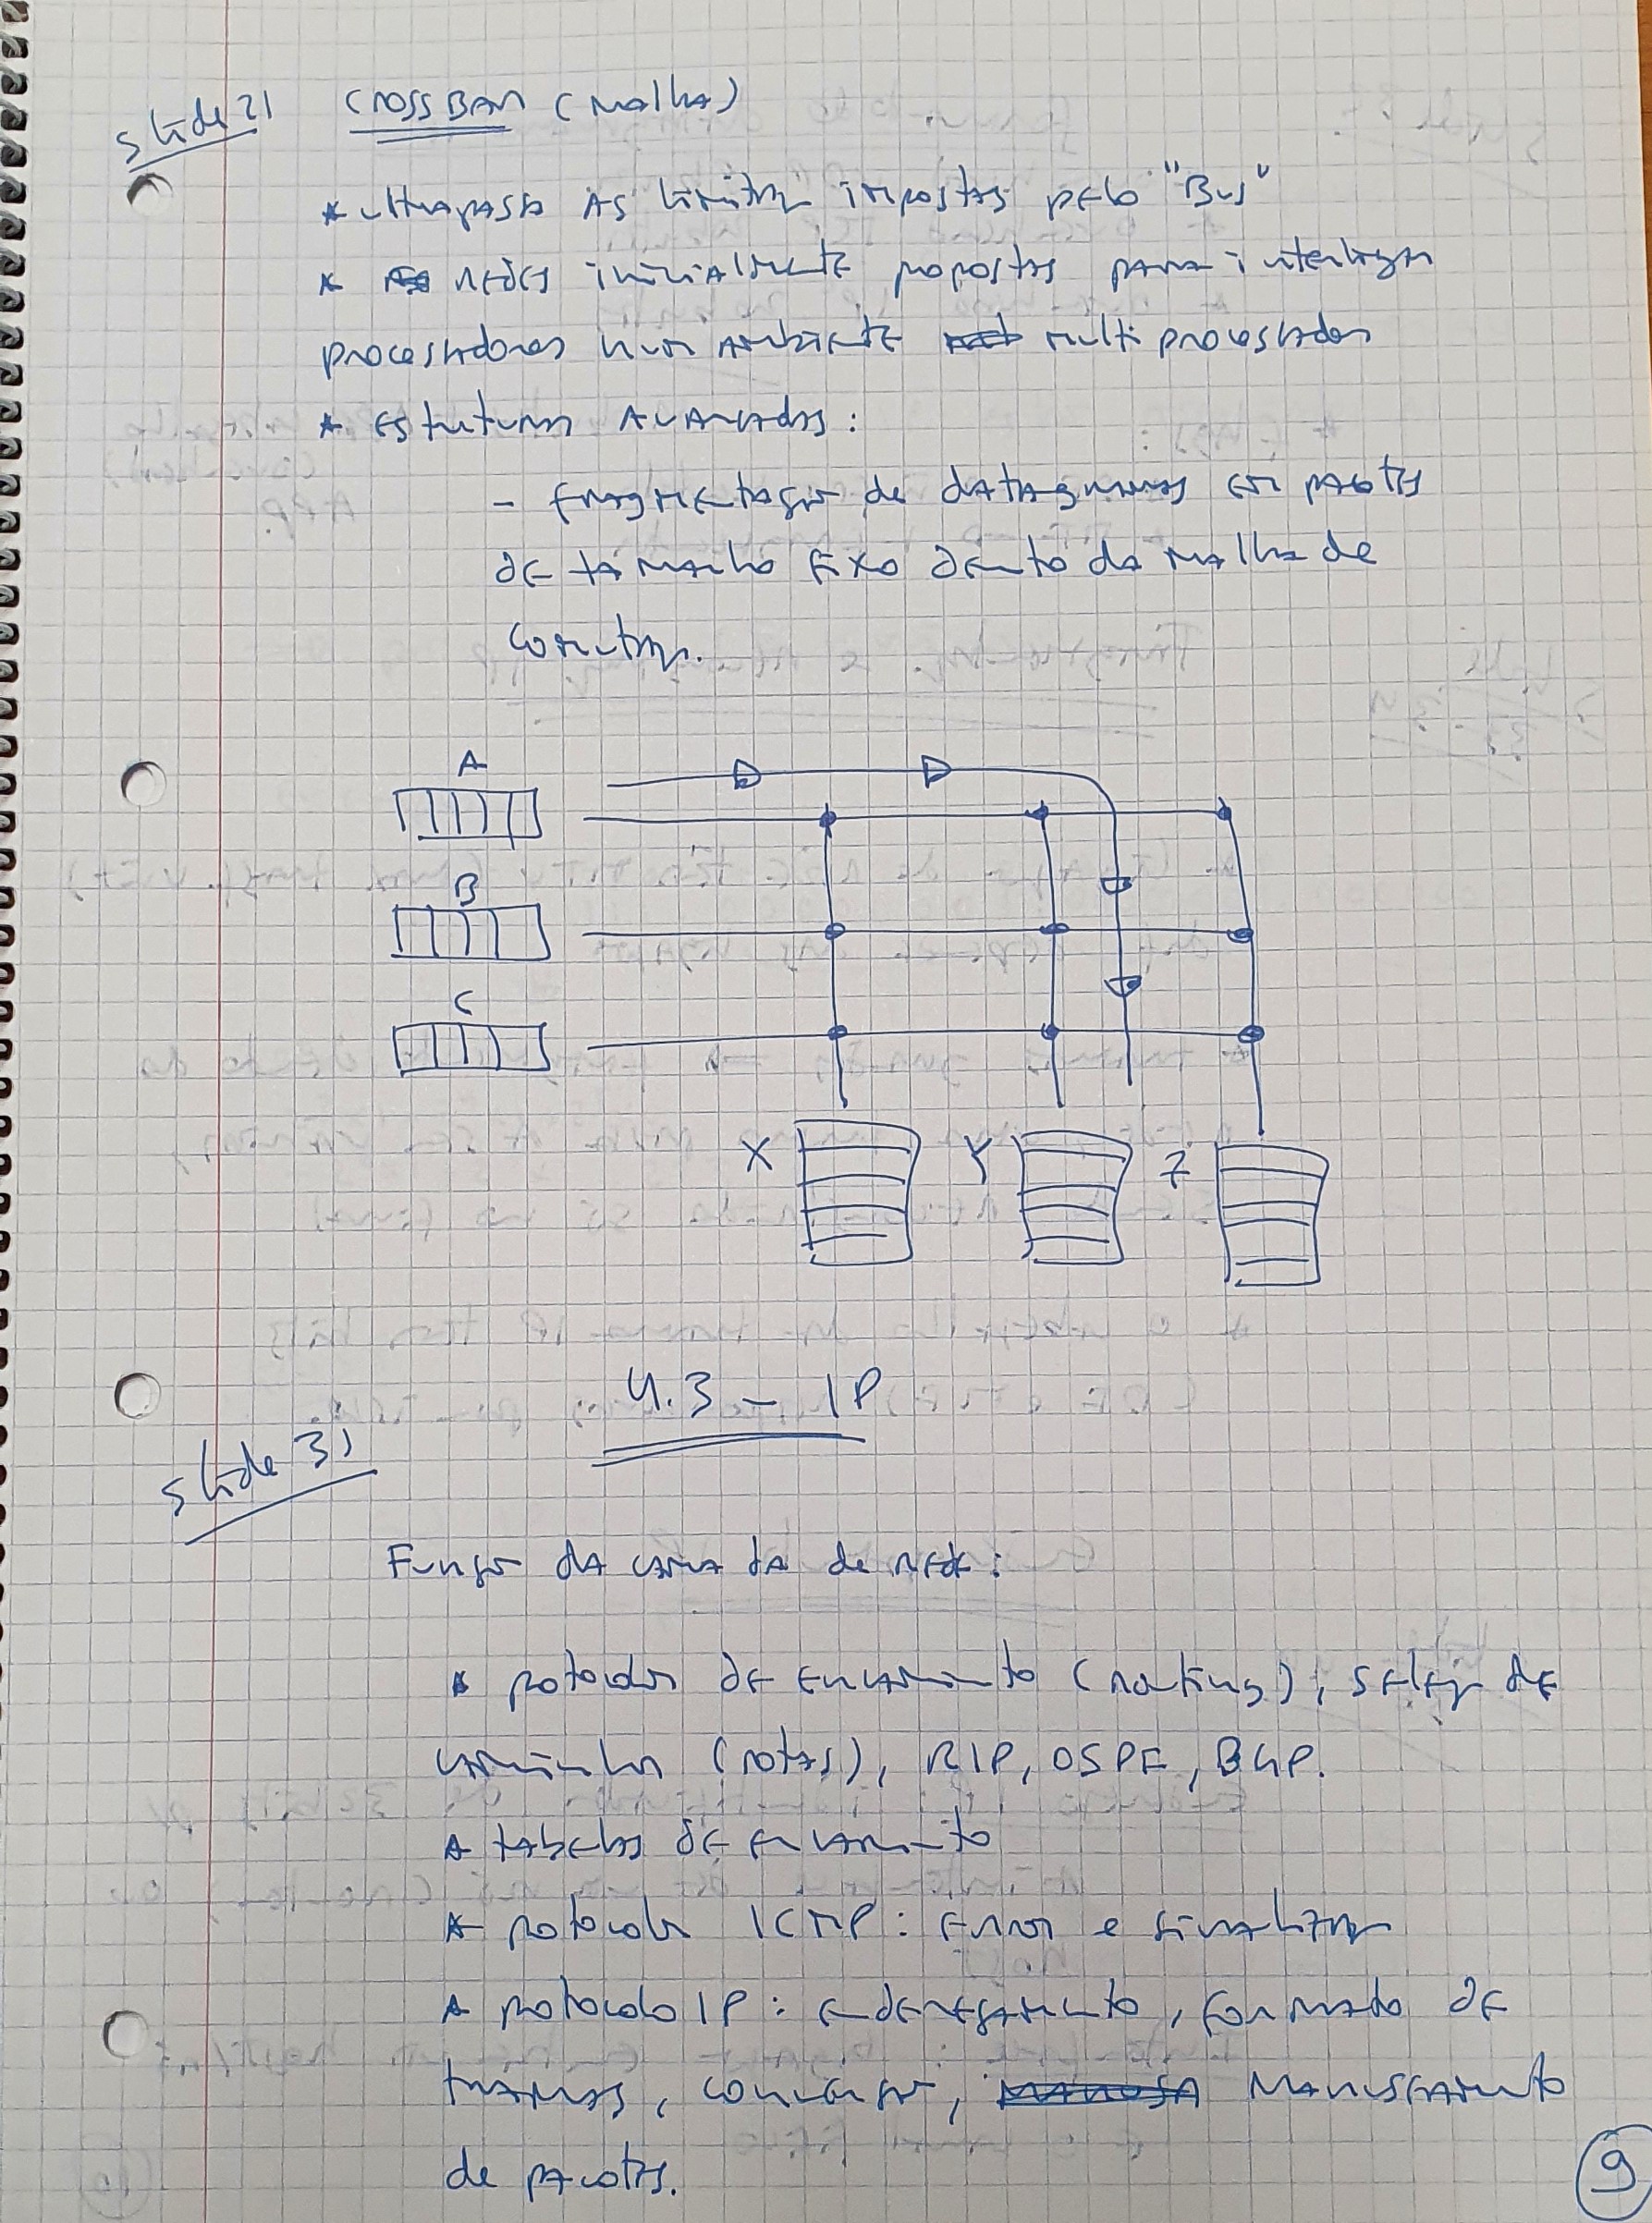 slide 21 CROSSBAR (malha)
* ultrapassa as limitações impostas pelo "Bus"
* redes inicialmente propostas para interligar
processadores num ambiente multi processador
* estruturas avançadas:
- fragmentação de datagramas em pacotes
de tamanho fixo dentro da malha de
comutação.
A
B
C
X Y Z
4.3 - IP
slide 31
Função da camada de rede:
* protocolos de encaminhamento (routing), seleção de
caminhos (rotas), RIP, OSPF, BGP.
* tabelas de encaminhamento
* protocolo ICMP: erros e sinalização
* protocolo IP: endereçamento, formato de
tramas, manuseamento
de pacotes.
9